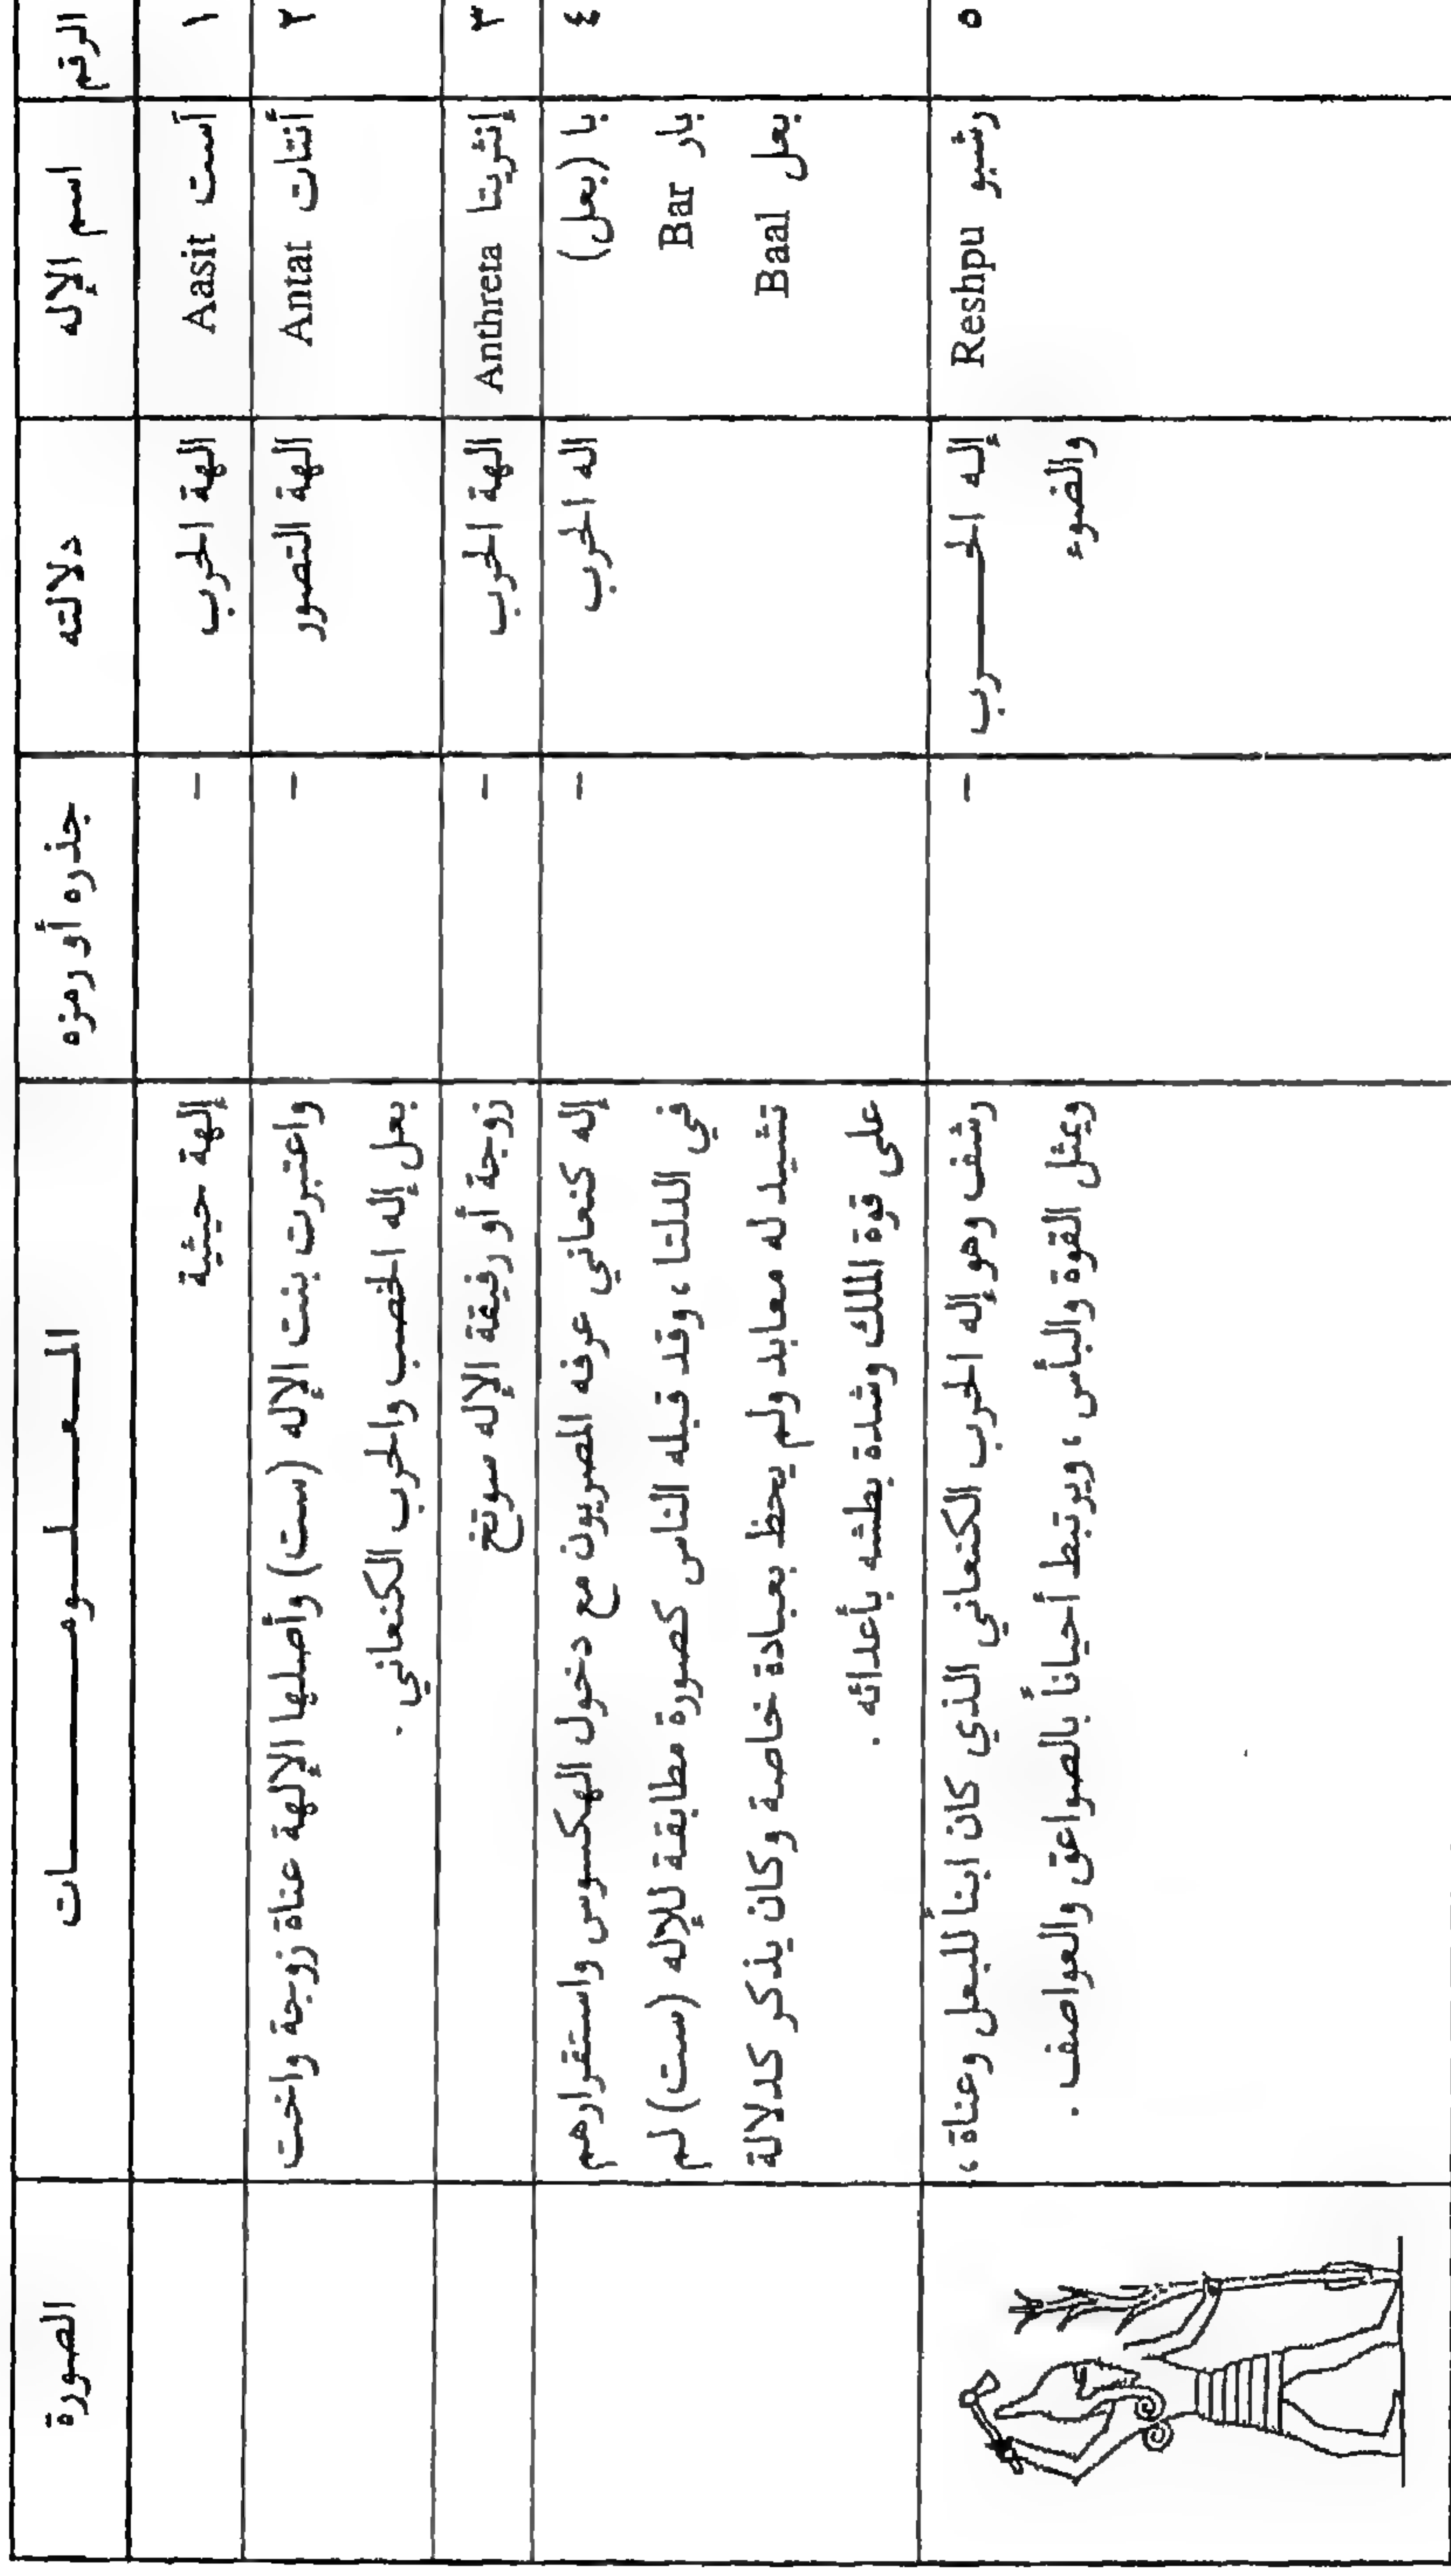 الرقم اسم الإله دلالته جذره أو رمزه المعلومات الصورة
١ آست Aasit الهة الحرب - إلهة حيثية
٢ أنتات Antat الهة التصور - واعتبرت بنت الإله (ست) وأصلها الإلهة عناة زوجة واخت
بعل إله الخصب والحرب الكنعاني .
٣ إنثريتا Anthreta الهة الحرب - زوجة أو رفيقة الإله سوتخ
٤ با (بعل) اله الحرب - إله كنعاني عرفه المصريون مع دخول الهكسوس واستقرارهم
بار Bar في الدلتا ، وقد قبله الناس كصورة مطابقة للإله (ست) لم
بعل Baal تشيد له معابد ولم يحظ بعبادة خاصة وكان يذكر كدلالة
على قوة الملك وشدة بطشه بأعدائه .
٥ رشبو Reshpu إله الحرب - رشف وهو إله الحرب الكنعاني الذي كان ابناً للبعل وعناة ،
والضوء ويمثل القوة والبأس ، ويرتبط أحياناً بالصواعق والعواصف .